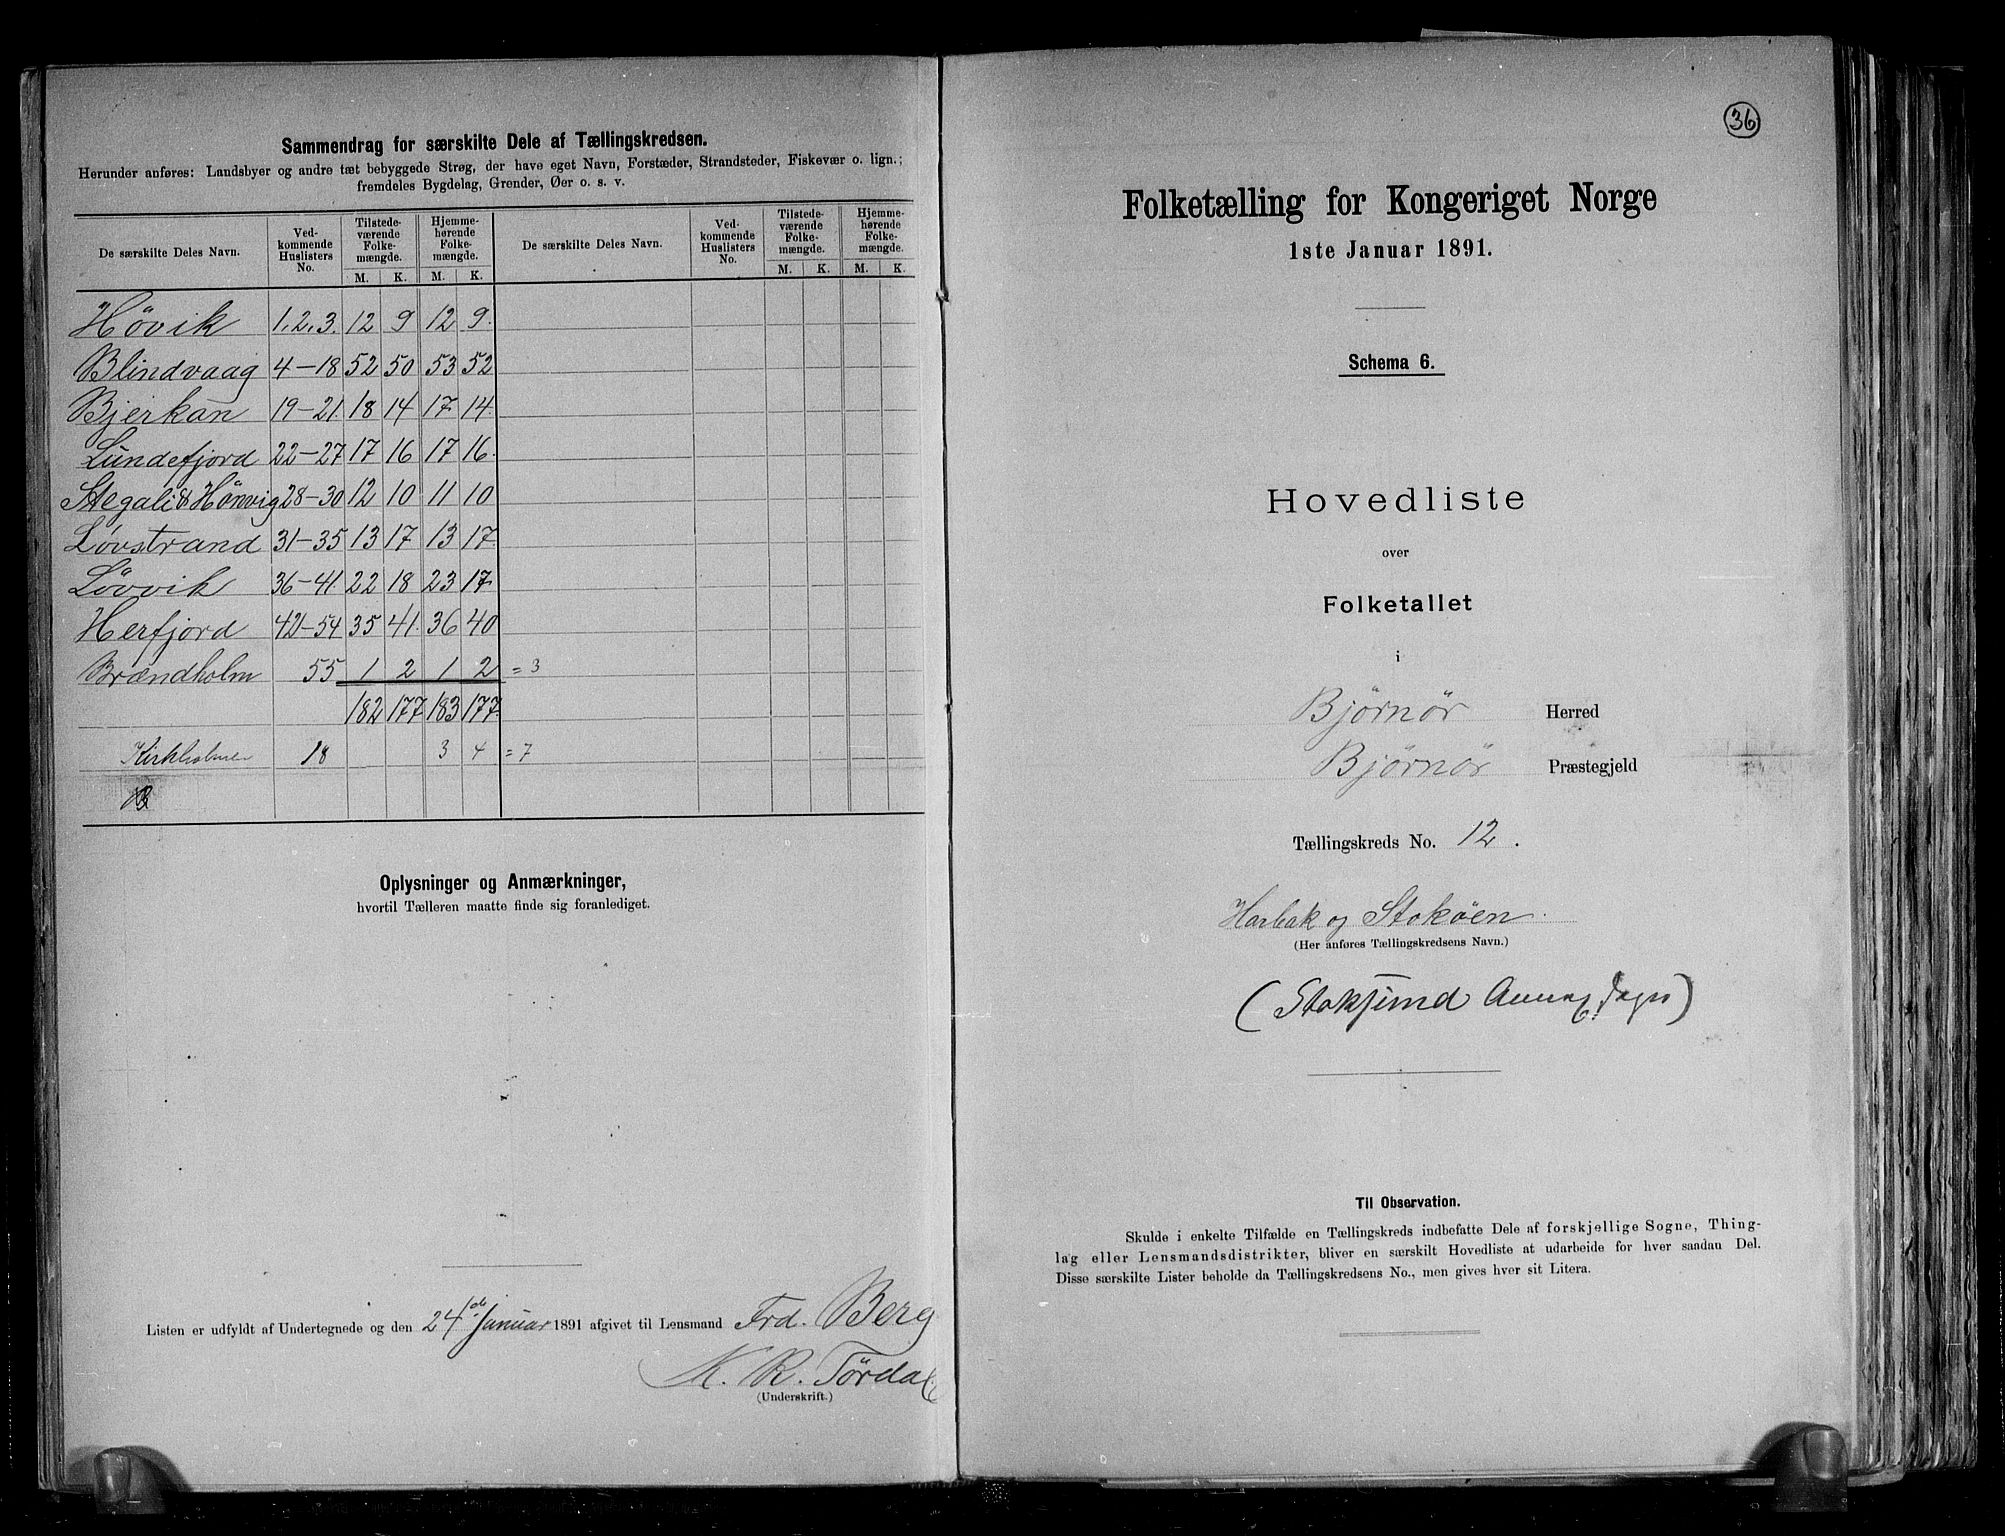 Sammendrag for særskilte Dele af Tællingskredsen.
Herunder anføres: Landsbyer og andre tæt bebyggede Strøg, der have eget Navn, Forstæder, Strandsteder, Fiskevær o. lign.;
fremdeles Bygdelag, Grender, Øer o. s. v.
De særskilte Deles Navn. Ved-kommende Huslisters No. Tilstede-værende Folke-mængde. Hjemme-hørende Folke-mængde. De særskilte Deles Navn. Ved-kommende Huslisters No. Tilstede-værende Folke-mængde. Hjemme-hørende Folke-mængde.
M. K. M. K. M. K. M. K.
Høvik 1, 2, 3. 12 9 12 9.
Blindvaag 4-18 52 50 53 52
Bjerkan 19-21. 18 14 17 14.
Lundefjord 22-27 17 16 17 16.
Stegali & Hönvig 28-30 12 10 11 10
Løvstrand 31-35 13 17 13 17.
Løvvik 36-41. 22 18 23 17
Herfjord 42-54 35 41. 36 40
Brændholm 55 1 2 1 2 = 3
182 177 183 177.
18 3 4 = 7
Oplysninger og Anmærkninger,
hvortil Tælleren maatte finde sig foranlediget.
Listen er udfyldt af Undertegnede og den 24de Januar 1891 afgivet til Lensmand Frd. Berg
K. R. Tørdal
(Underskrift.)
36
Folketælling for Kongeriget Norge
1ste Januar 1891.
Schema 6.
Hovedliste
over
Folketallet
i
Bjørnør Herred
Bjørnør Præstegjeld
Tællingskreds No. 12.
Harbak og Stokøen.
(Her anføres Tællingskredsens Navn.)
(Stoksund
Til Observation.
Skulde i enkelte Tilfælde en Tællingskreds indbefatte Dele af forskjellige Sogne, Thing-
lag eller Lensmandsdistrikter, bliver en særskilt Hovedliste at udarbeide for hver saadan Del.
Disse særskilte Lister beholde da Tællingskredsens No., men gives hver sit Litera.